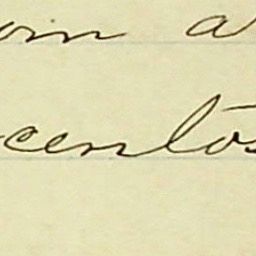 om a
centos